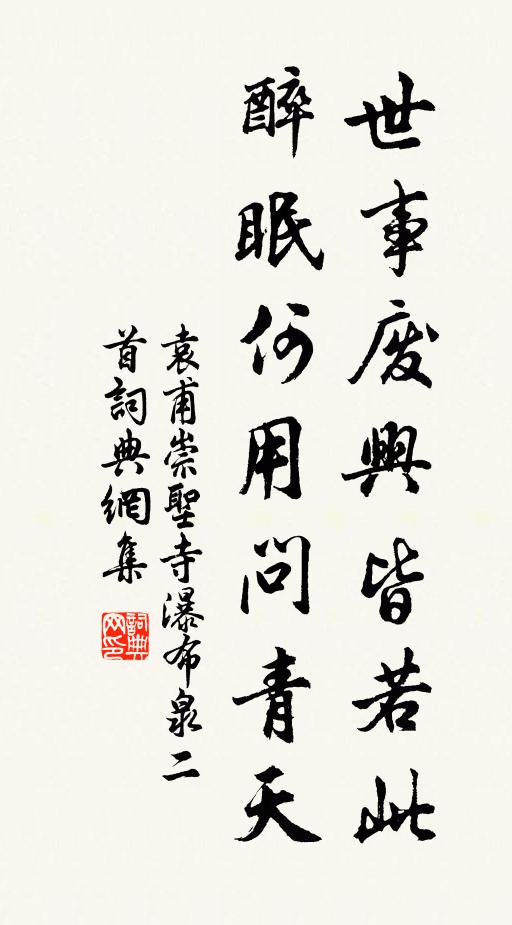 世事废興皆若此
醉眠何用問青天
袁甫崇聖寺瀑布泉二
首詞典網集
詞典
网印